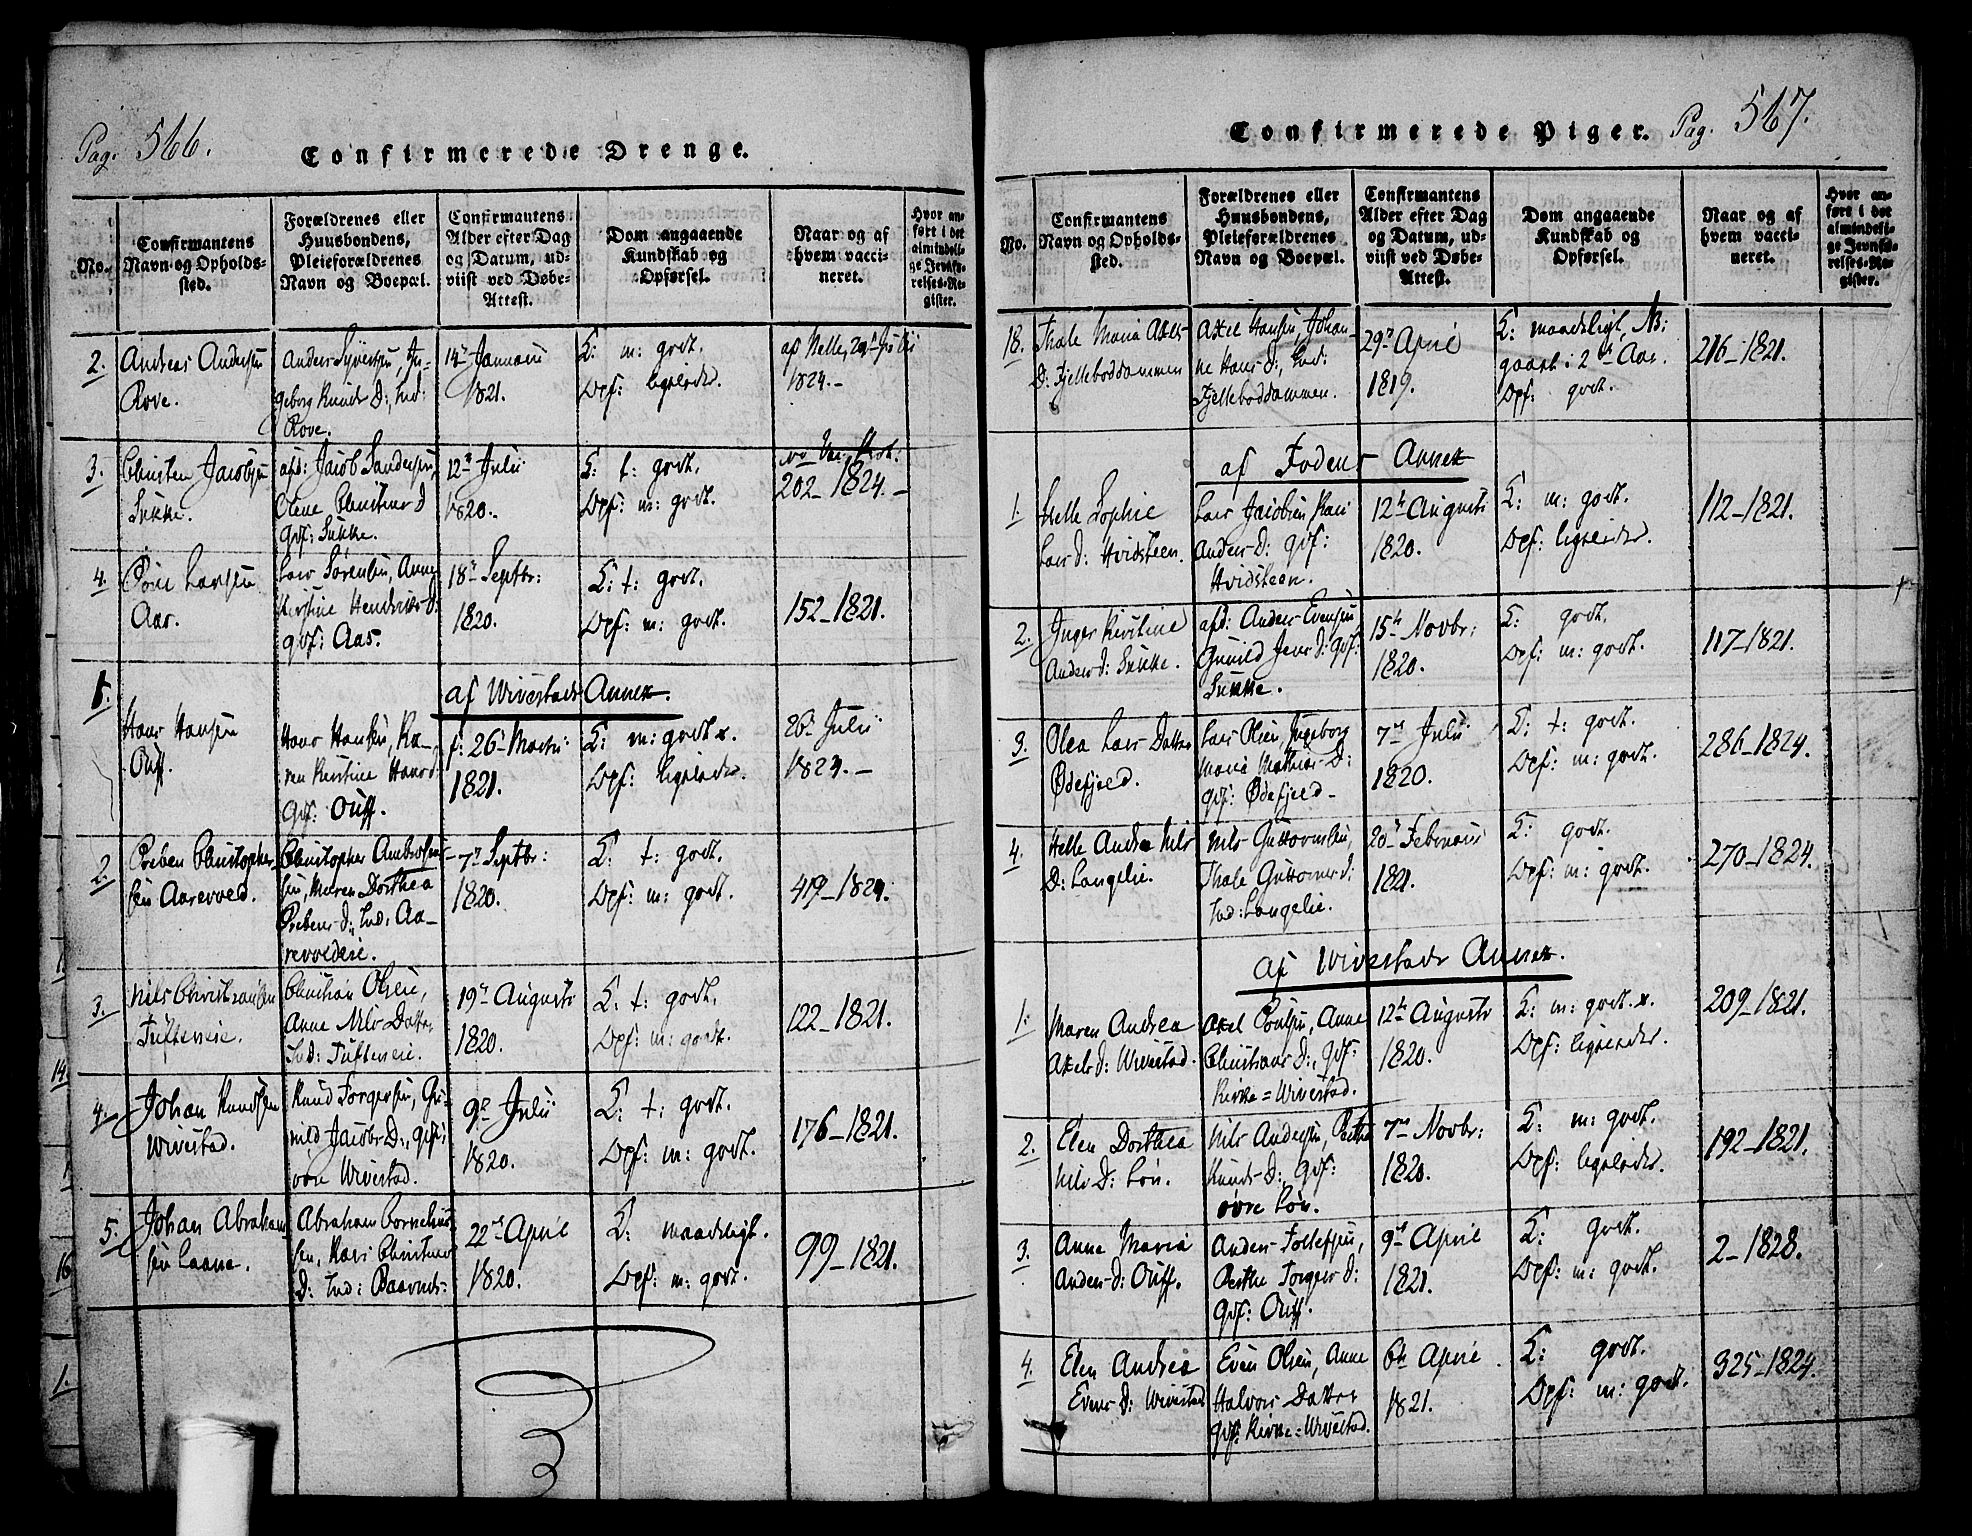 Pag. 566.
Confirmerede Drenge.
No.
Confirmantens
Navn og Opholds-
sted.
Forældrenes eller
Huusbondens,
Pleieforældrenes
Navn og Boepæl.
Confirmantens
Alder efter Dag
og Datum, ud-
viist ved Døbe-
Attest.
Dom angaaende
Kundskab og
Opførsel.
Naar og af
hvem vacci-
neret.
Hvor an-
ført i det
almindeli-
ge Jevnfø-
relses-Re-
gister.
2.
Andreas Andersen
Rove.
Anders Syversen, In-
geborg Knuds D:, Ind:
Rove.
14de Januari
1821.
K: m: godt.
Opf: ligeledes.
af Nelle, 29de Juli
1824.-
3.
Christen Jacobsen
Sukke.
afd: Jacob Sandersen,
Olene Christens D
gdf: Sukke.
12te Julii
1820.-
K: t: godt.
Opf: m: godt.
202-1824.-
4.
Larsen
Aas.
Lars Sørensen, Anne
Kirstine Hendrics D:
gdf: Aas.
18de Septbr:
1820.
K: t: godt.
Opf: m: godt.
152-1821.
af Wivestads Annex.
1.
Hans Hansen
Ouff.
Hans Hansen, Ka-
ren Kirstine Hans D:
Gdf: Ouff.
f: 26 Martii
1821.
K: m: godt x.
Opf: ligeledes.
26 Julii
1824.-
2.
Preben Christopher-
sen Aarevold.
Christopher Ambrosen-
sen, Maren Dorthea
Prebens D:, Ind: Aa-
revoldeie.
7de Septbr:
1820.
K: t: godt.
Opf: m: godt.
419-1824.
3.
Nils Christiansen
Tufteneie.
Christian Olsen,
Anne Nils Datter,
Ind: Tufteneie.
19de Augusti
1820.
K: t: godt.
Opf: m: godt.
122-1821.
4.
Johan Knudsen
Wivestad.
Knud Torgersen, Gu-
nild Jacobs D:, gdf:
Wivestad.
9de Julii
1820.
K: t: godt.
Opf: m: godt.
176-1821.
5.
Johan Abraham-
sen Laane.
Abraham Cornelius-
sen, Kari Christens
D: Ind:
22de April
1820.
K: maadeligt.
Opf: m: godt.
99-1821.
Confirmerede Piger. Pag. 567.
No.
Confirmantens
Navn og Opholds-
sted.
Forældrenes eller
Huusbondens,
Pleieforældrenes
Navn og Boepæl.
Confirmantens
Alder efter Dag
og Datum, ud-
viist ved Døbe-
Attest.
Dom angaaende
Kundskab og
Opførsel.
Naar og af
hvem vacci-
neret.
Hvor an-
ført i det
almindeli-
ge Jevnfø-
relses-Re-
gister.
18.
Thale Maria Axels
D: Fjelleboddammen
Axel Hansen, Johan-
ne Hans D:, Ind:
Fjelleboddammen.
29de April
1819.
K: maadeligt, NB:
gaaet i 2det Aar.
Opf: godt.
216-1821.
af Fodens Annex
1.
Helle Sophie
Lars D: Hvidsteen.
Lars Jacobsen, Kari
Anders D: gdf:
Hvidsteen.
12te Augusti
1820.
K: m: godt.
Opf: ligeledes.
112-1821.
2.
Inger Kirstine
Anders D: Sukke.
afd: Anders Evensen,
Gunild Jens D: gdf:
Sukke.
15de Novbr:
1820.
K: godt.
Opf: m: godt.
117-1821.
3.
Olea Lars Datter
Ødefjeld.
Lars Olsen, Ingeborg
Maria Mathias D:
gdf: Ødefjeld-
7de Julii
1820.
K: t: godt.
Opf: m: godt.
286-1824.
4.
Helle Andrea Nils
D: Langelie.
Nils Guttormsen,
Thale Guttorms D:
Ind: Langelie.
20de Februari
1821.
K: godt.
Opf: m: godt.
270-1824.
af Wivestads Annex.
1.
Maren Andrea
Axels D: Wivestad.
Axel Poulsen, Anne
Christians D:, gdf:
Kirke=Wivestad.
12te Augusti
1820.
K: m: godt. x.
Opf: ligeledes.
209-1821.
2.
Elen Dorthea
Nils D: Løn.
Nils Andersen, Berthe
Knuds D:, gdf:
øvre Løn.
7de Novbr:
1820.
K: m: godt.
Opf: ligeledes.
192-1821.
3.
Anne Maria
Anders D: Ouff.
Anders Tollefsen,
Berthe Torgers D:
gdf: Ouff.
9de April
1821.
K: godt.
Opf: m: godt.
2-1828.
4.
Elen Andrea
Evens D: Wivestad
Even Olsen, Anne
Halvors Datter
gdf: Kirke=Wivestad.
6te April
1821.
K: godt.
Opf: m: godt.
325-1824.